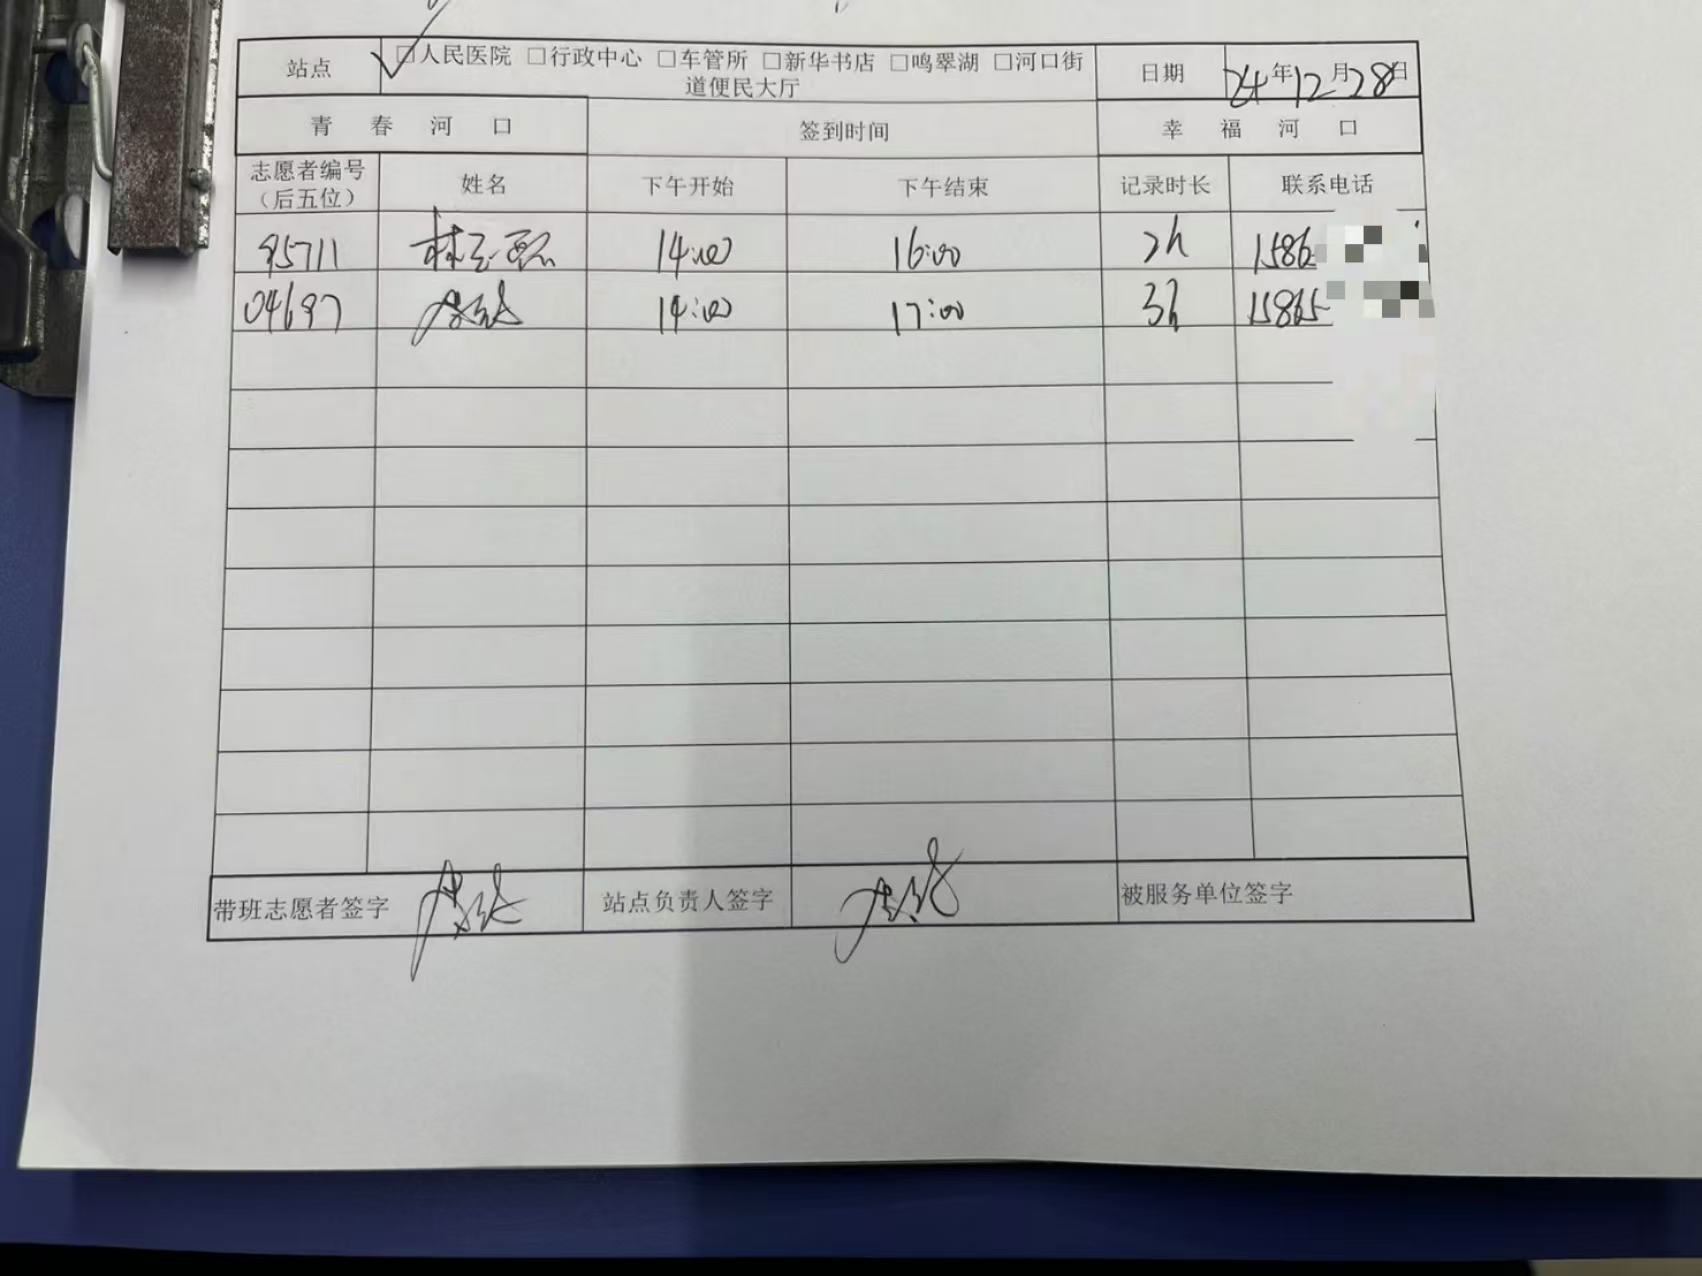 站点 ☑人民医院 □行政中心 □车管所 □新华书店 □鸣翠湖 □河口街道便民大厅 日期 24年12月28日
青 春 河 口 签到时间 幸 福 河 口
志愿者编号（后五位） 姓名 下午开始 下午结束 记录时长 联系电话
95711 14:00 16:00 2h 1586
04697 14:00 17:00 3h 15865
带班志愿者签字 站点负责人签字 被服务单位签字